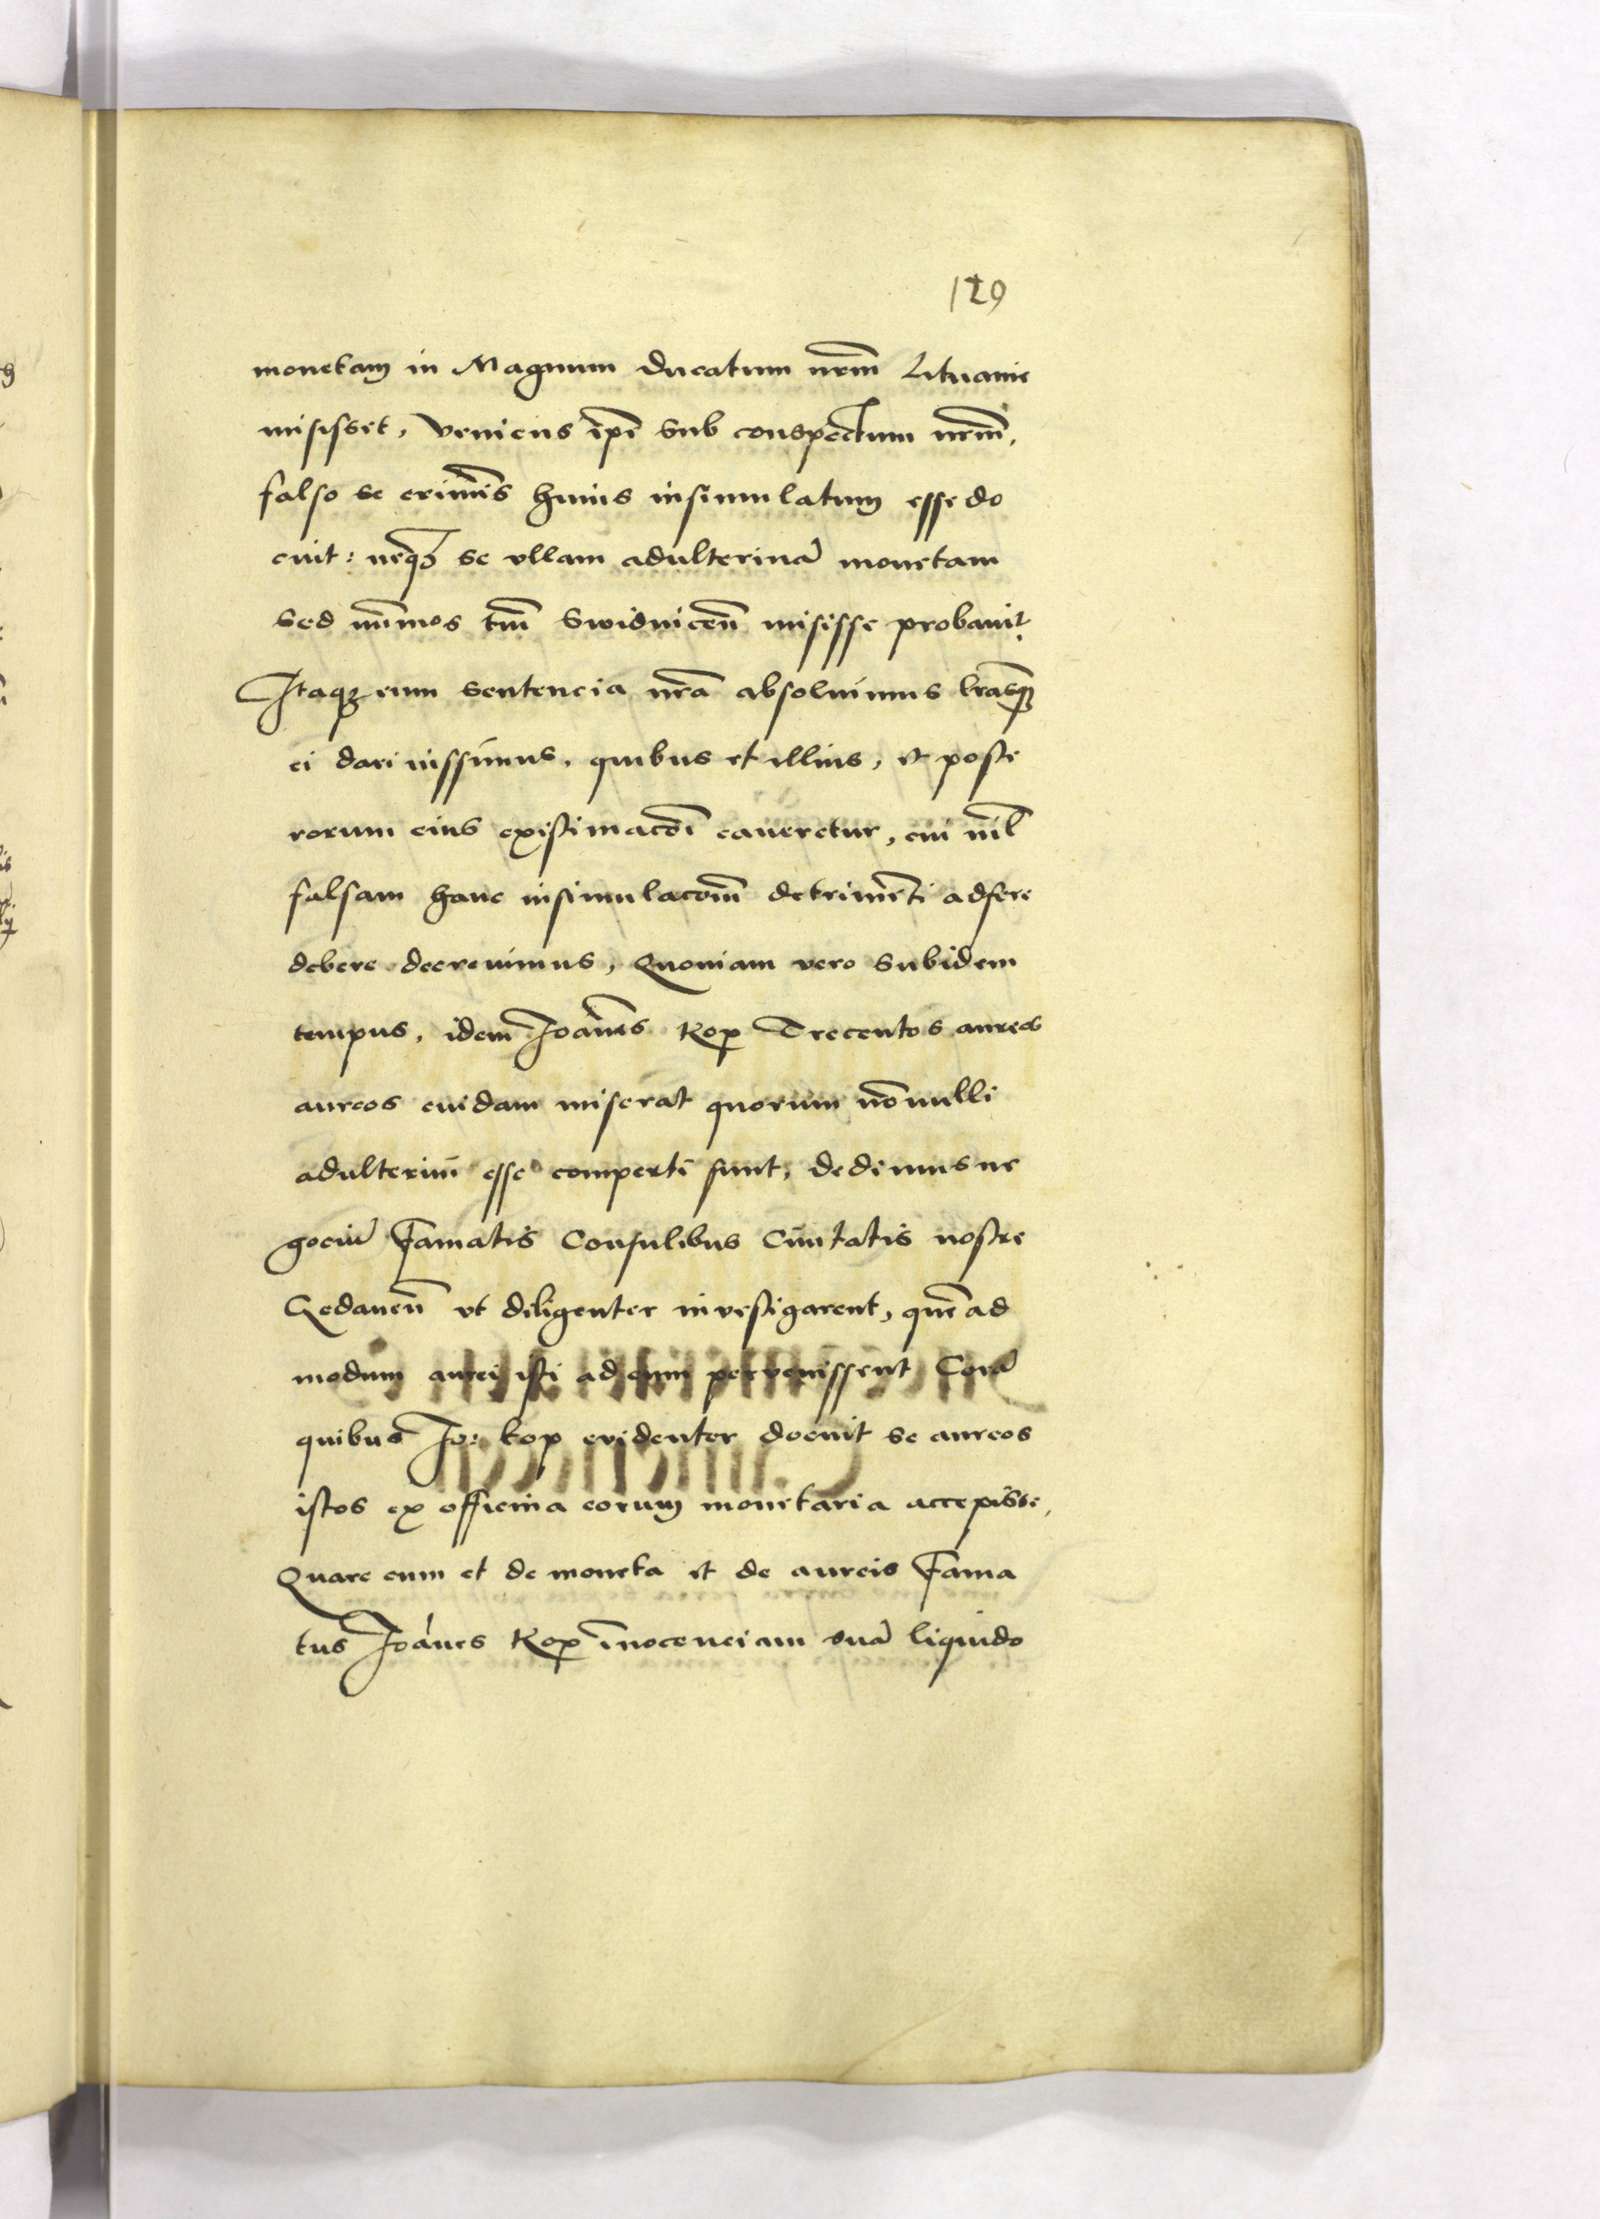 129
monetam in Magnum ducatum nrm̃ Lituanie
misisset, veniens ip̃e sub conspectum nrm̃,
falso se crimīs huius insimulatum esse do
cuit: neq́ꝫ se vllam adulterinā monetam
sed nūmos tm̃ Swidniceñ misisse probauit.
Itaqꝫ eum sentencia nr̃a absoluimus lr̃asqꝫ
ei dari iussimus, quibus et illius, et poste
rorum eius existimacōi caueretur, cui nil
falsam hanc insimulacōm detrimēti adfere
debere decreuimus, Quoniam vero sub idem
tempus, idem Joānes Kop Trecentos aureos
aureos cuidam miserat quorum nōnulli
adulterini esse comperti sunt, dedimus ne
gociū Famatis Consulibus Ciuitatis nostre
Gedaneñ vt diligenter inuestigarent, quē ad
modum aurei isti ad eum peruenissent Corā
quibus Jo: kop euidenter docuit se aureos
istos ex officina eorum monetaria accepisse,
Quare cum et de moneta et de aureis Fama
tus Joānes Kop īnocenciam suā liquido